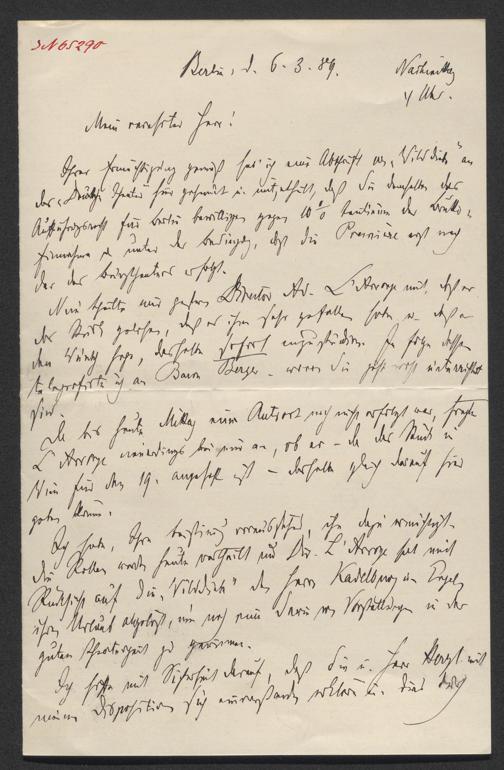 IN 65290
Berlin, d. 6.3.89. Nachmittag
4 Uhr.
Mein verehrter Herr!
Ihrer Ermächtigung gemäß hab' ich eine Abschrift von „Wilddiebe" an
das „Deutsche Theater" hier gesandt u. mitgetheilt, daß Sie demselben das
Aufführungsrecht für Berlin bewilligen gegen 10% Tantièmen der Brutto-
Einnahme u. unter der Bedingung, daß die Première erst nach
der des Burgtheaters erfolgt.
Nun theilte mir gestern Director Ad. L'Arronge mit, daß er
das Stück gelesen, daß es ihm sehr gefallen habe u. daß er
den Wunsch hege, dasselbe sofort einzustudiren. In Folge dessen
telegrafirte ich an Baron Berger – wovon Sie jetzt wohl unterrichtet
sind.
Da bis heute Mittag eine Antwort noch nicht erfolgt war, fragte
L'Arronge neuerdings bei mir an, ob er – da das Stück in
Wien für den 19. angesetzt ist – dasselbe gleich darauf hier
geben könne.
Ich habe, Ihre Zustimmung voraussetzend, ihn dazu ermächtigt.
Die Rollen werden heute vertheilt und Dir. L'Arronge hat mit
Rücksicht auf die „Wilddiebe" den Herren Kadelburg u. Engels
ihren Urlaub abgelöst, um noch eine Serie von Vorstellungen in der
guten Theaterzeit zu gewinnen.
Ich hoffe mit Sicherheit darauf, daß Sie u. Herr Herzl mit
meinen Dispositionen sich einverstanden erklären u. dies